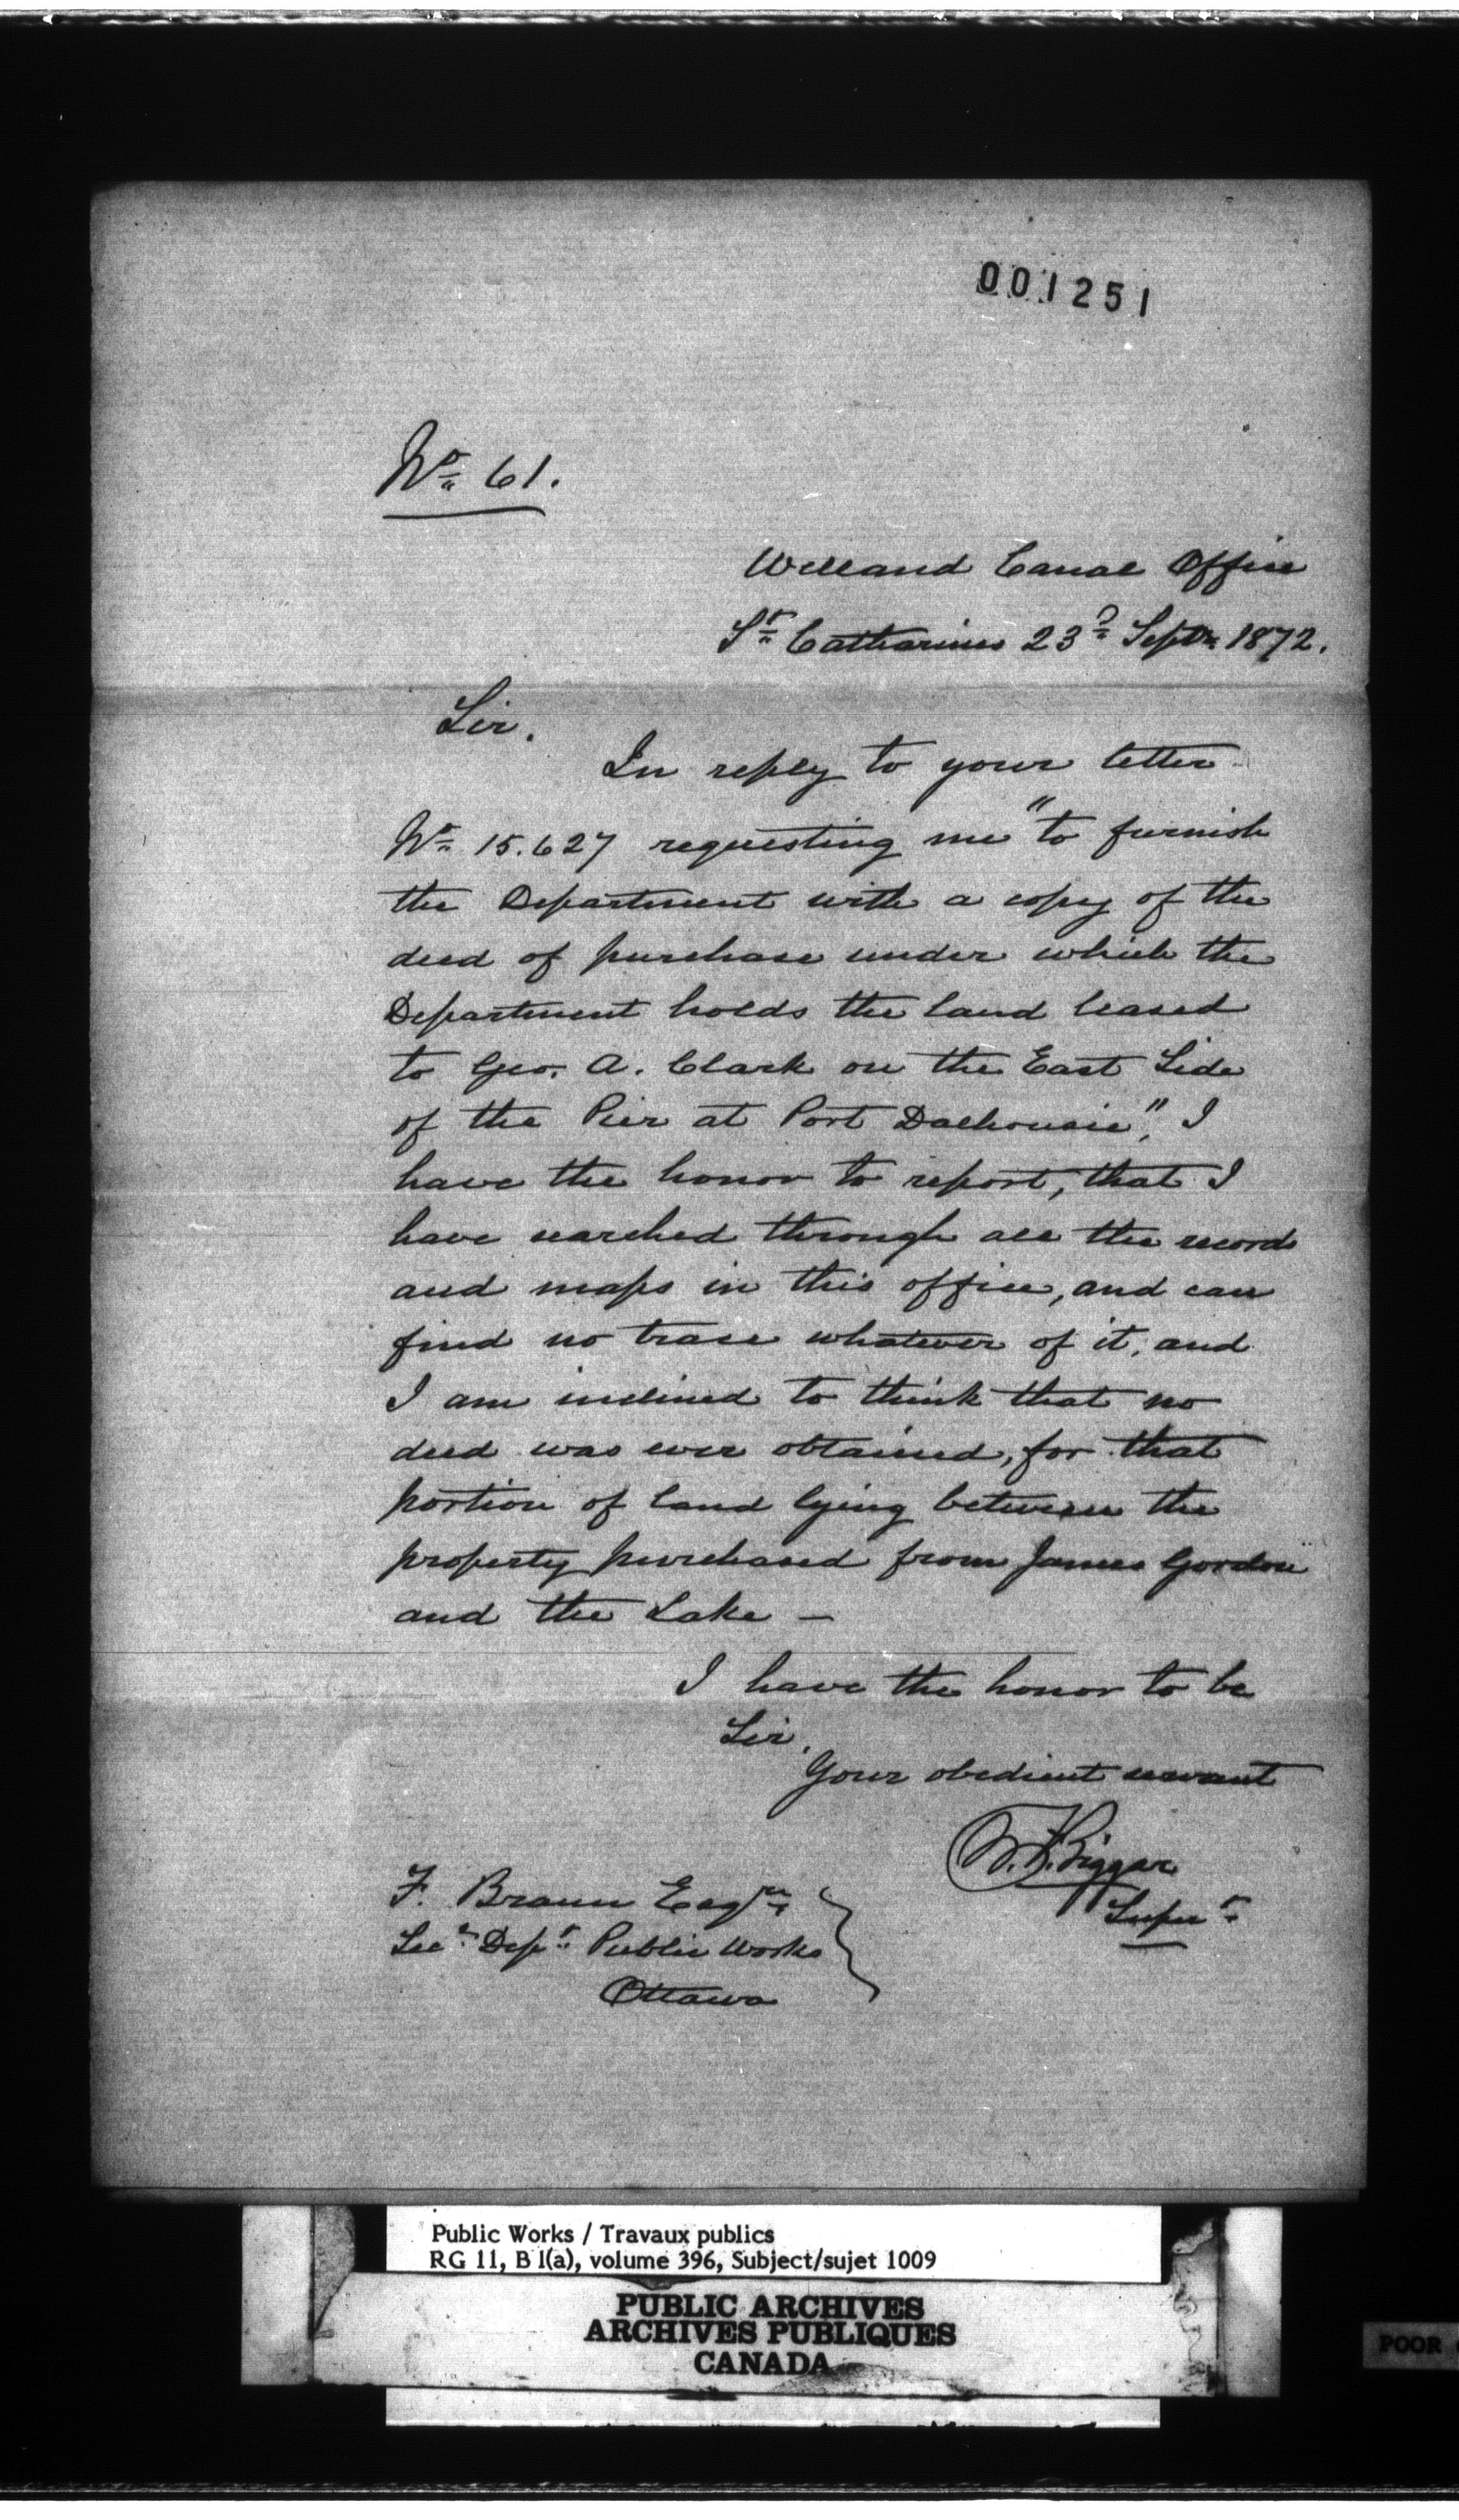 001251
No 61.
Welland Canal Office
St Catharines 23d Septr 1872.
Sir.
In reply to your letter
No 15.627 requesting me "to furnish
the Department with a copy of the
deed of purchase under which the
Department holds the land leased
to Geo. A. Clark on the East Side
of the Pier at Port Dalhousie", I
have the honor to report, that I
have searched through all the records
and maps in this office, and can
find no trace whatever of it, and
I am inclined to think that no
deed was ever obtained, for that
portion of land lying between the
property purchased from James Gordon
and the Lake —
I have the honor to be
Sir,
Your obedient servant
Biggar
Supt
F. Braun Esqre
Secy Dept Public Works
Ottawa
Public Works / Travaux publics
RG 11, B1(a), volume 396, Subject/sujet 1009
PUBLIC ARCHIVES
ARCHIVES PUBLIQUES
CANADA
POOR